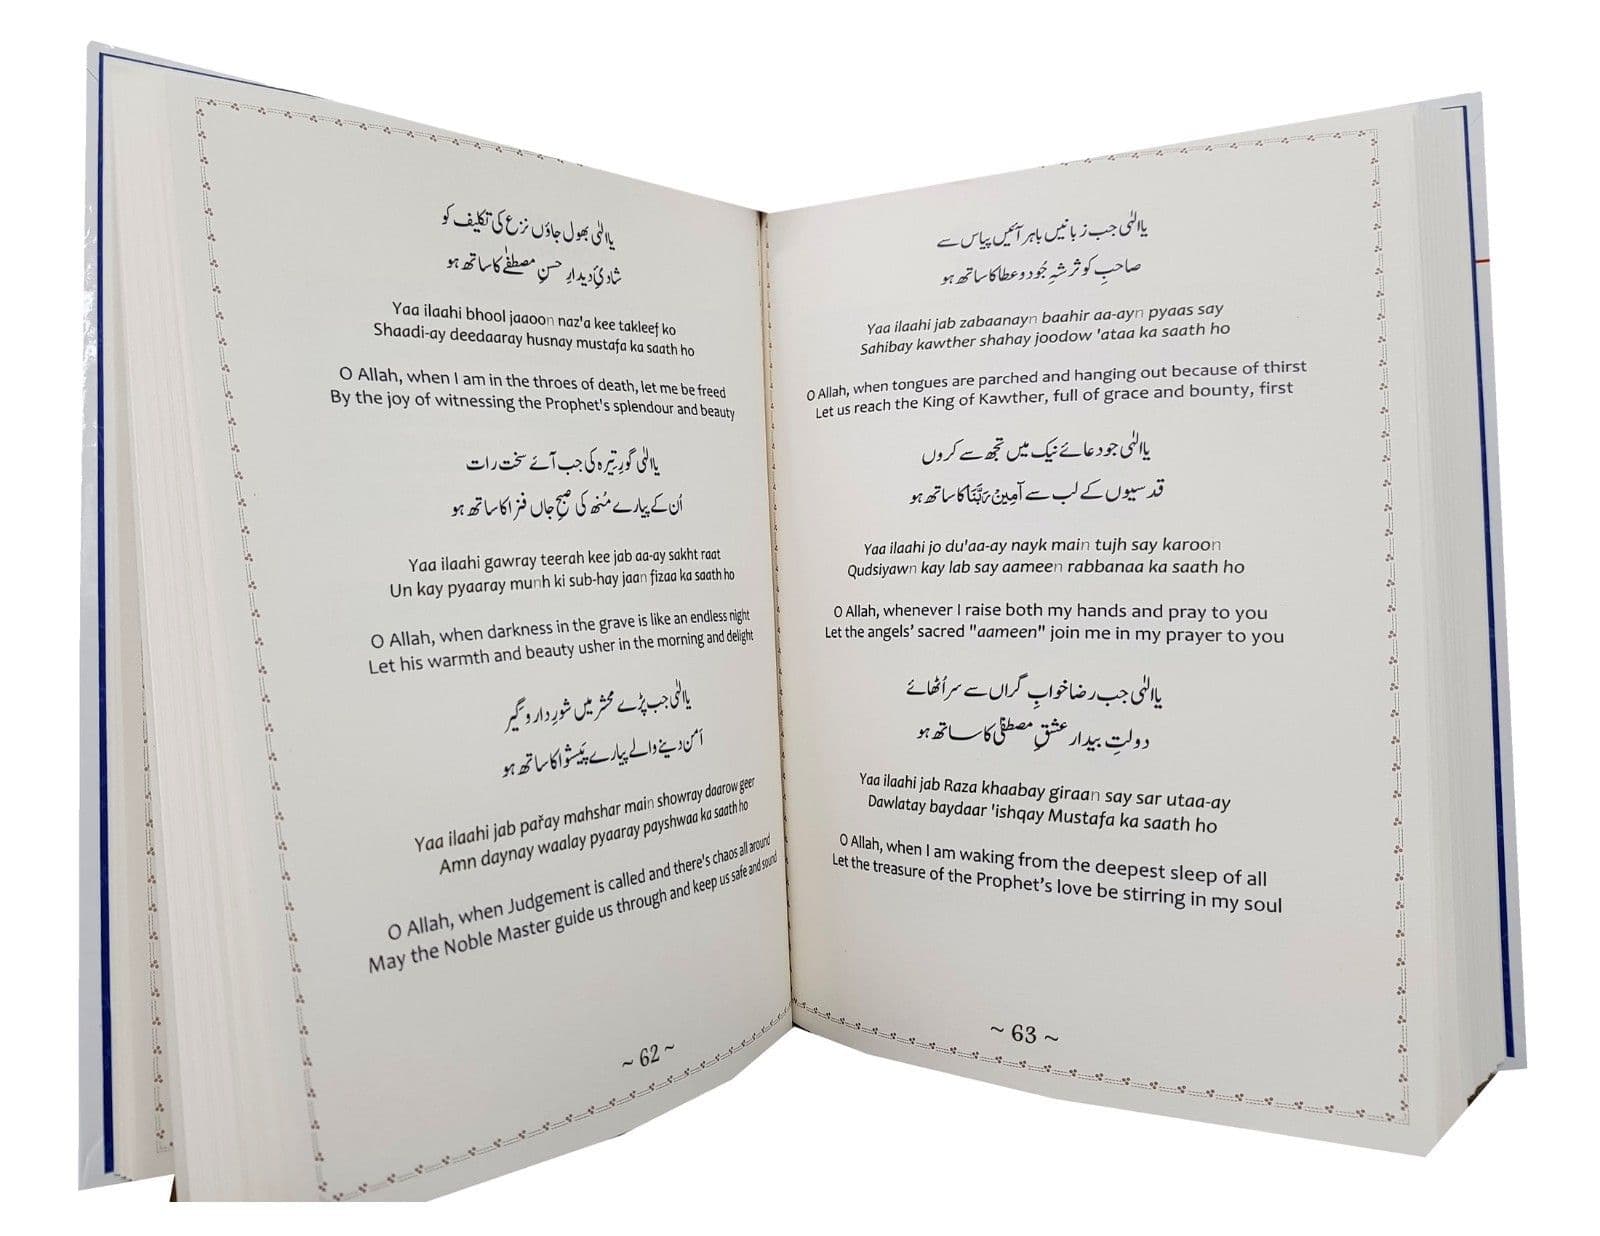 یاالٰہی بھول جاؤں نزع کی تکلیف کو
شادیِٔ دیدارِ حسنِ مصطفٰے کا ساتھ ہو
Yaa ilaahi bhool jaaoon naz'a kee takleef ko
Shaadi-ay deedaaray husnay mustafa ka saath ho
O Allah, when I am in the throes of death, let me be freed
By the joy of witnessing the Prophet's splendour and beauty
یاالٰہی گورِ تیرہ کی جب آئے سخت رات
اُن کے پیارے مُنھ کی صبحِ جاں فزا کا ساتھ ہو
Yaa ilaahi gawray teerah kee jab aa-ay sakht raat
Un kay pyaaray munh ki sub-hay jaan fizaa ka saath ho
O Allah, when darkness in the grave is like an endless night
Let his warmth and beauty usher in the morning and delight
یاالٰہی جب پڑے محشر میں شورِ دار و گیر
اَمن دینے والے پیارے پَیشوا کا ساتھ ہو
Yaa ilaahi jab pařay mahshar main showray daarow geer
Amn daynay waalay pyaaray payshwaa ka saath ho
O Allah, when Judgement is called and there's chaos all around
May the Noble Master guide us through and keep us safe and sound
~ 62 ~
یاالٰہی جب زبانیں باہر آئیں پیاس سے
صاحبِ کوثر شہِ جُود و عطا کا ساتھ ہو
Yaa ilaahi jab zabaanayn baahir aa-ayn pyaas say
Sahibay kawther shahay joodow 'ataa ka saath ho
O Allah, when tongues are parched and hanging out because of thirst
Let us reach the King of Kawther, full of grace and bounty, first
یاالٰہی جو دعائے نیک میں تجھ سے کروں
قدسیوں کے لب سے آمِیْن رَبَّنَا کا ساتھ ہو
Yaa ilaahi jo du'aa-ay nayk main tujh say karoon
Qudsiyawn kay lab say aameen rabbanaa ka saath ho
O Allah, whenever I raise both my hands and pray to you
Let the angels’ sacred "aameen" join me in my prayer to you
یاالٰہی جب رضا خوابِ گراں سے سر اُٹھائے
دولتِ بیدار عشقِ مصطفٰی کا ساتھ ہو
Yaa ilaahi jab Raza khaabay giraan say sar utaa-ay
Dawlatay baydaar 'ishqay Mustafa ka saath ho
O Allah, when I am waking from the deepest sleep of all
Let the treasure of the Prophet’s love be stirring in my soul
~ 63 ~